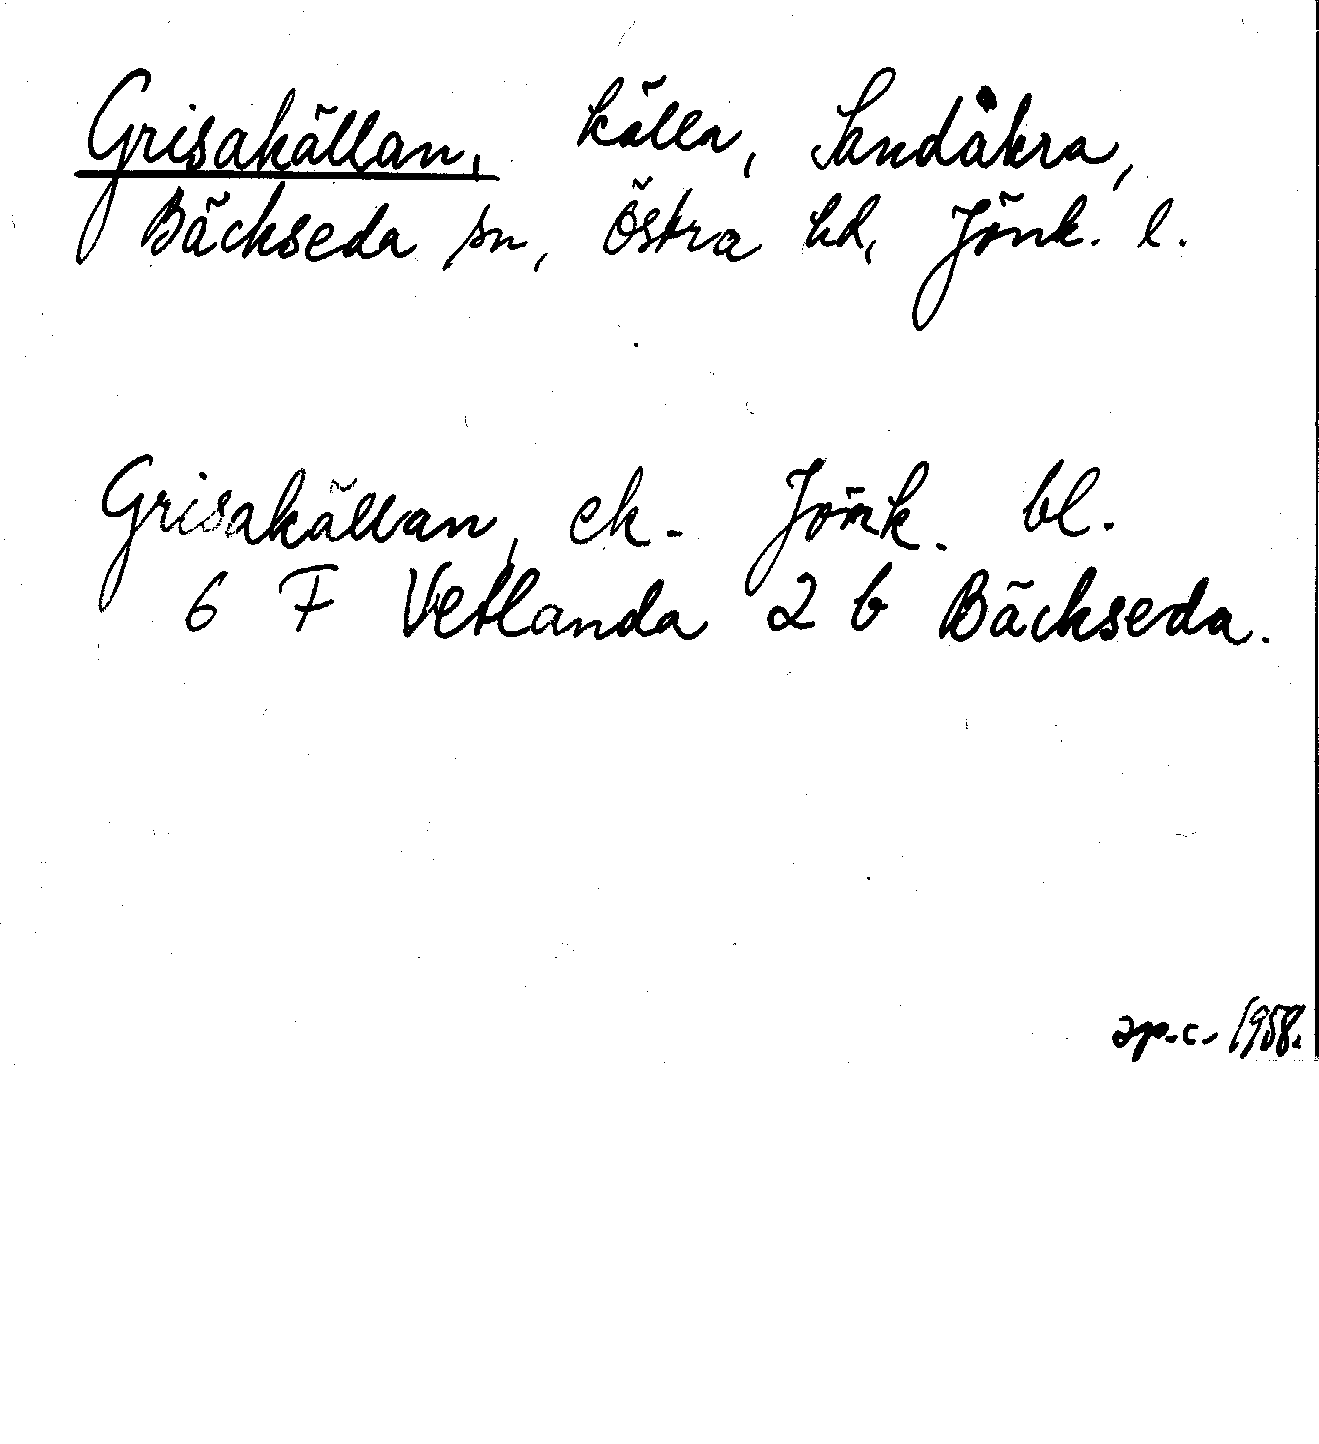 Grisakällan, källa, Sandåkra,
Bäckseda sn, Östra hd, Jönk. l.
Grisakällan, ek. Jönk. bl.
6 F Vetlanda 2 b Bäckseda.
1958.